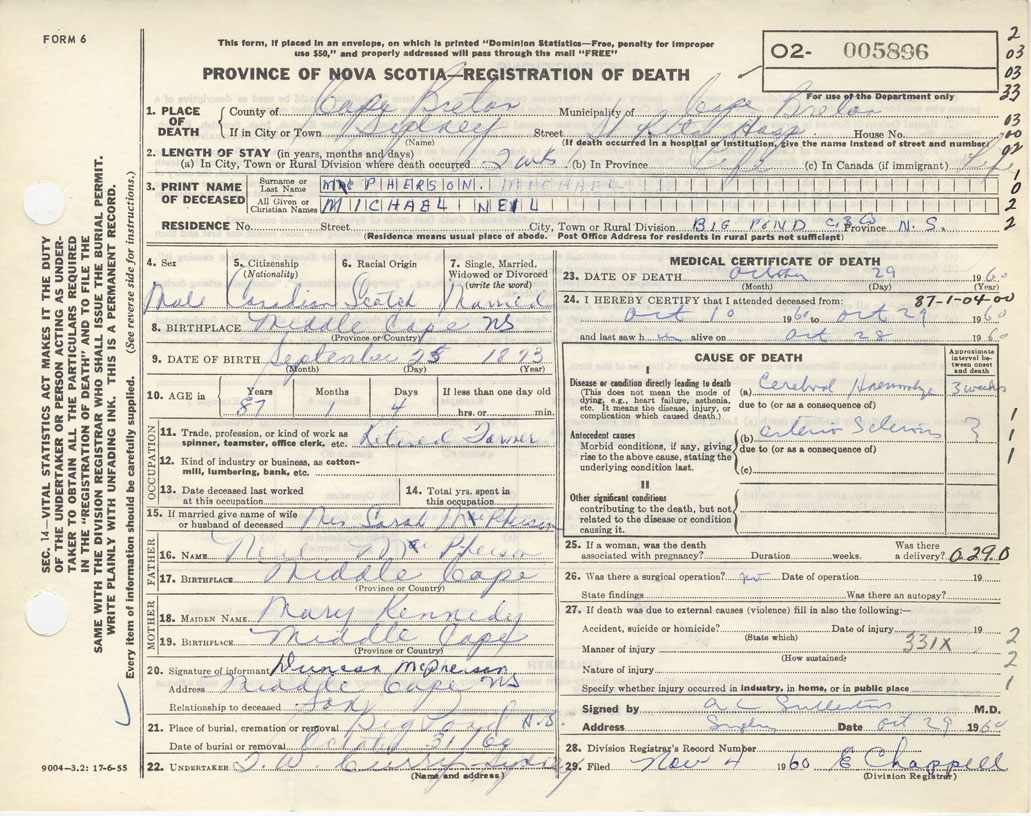 FORM 6
This form, if placed in an envelope, on which is printed "Dominion Statistics—Free, penalty for improper
use $50," and properly addressed will pass through the mail "FREE"
PROVINCE OF NOVA SCOTIA—REGISTRATION OF DEATH
02- 005896
For use of the Department only
2
03
03
33
03
00
02
1
0
2
2
1. PLACE OF DEATH
County of Cape Breton Municipality of Cape Breton
If in City or Town Sydney Street St Rita Hosp. House No.
(Name) (If death occurred in a hospital or institution, give the name instead of street and number)
2. LENGTH OF STAY (in years, months and days)
(a) In City, Town or Rural Division where death occurred 2 wks (b) In Province Life (c) In Canada (if immigrant) Life
3. PRINT NAME OF DECEASED
Surname or Last Name McPHERSON. MICHAEL
All Given or Christian Names MICHAEL NEIL
RESIDENCE No. Street City, Town or Rural Division BIG POND C.B. Co Province N.S.
(Residence means usual place of abode. Post Office Address for residents in rural parts not sufficient)
4. Sex
Male
5. Citizenship
(Nationality)
Canadian
6. Racial Origin
Scotch
7. Single, Married,
Widowed or Divorced
(write the word)
Married
8. BIRTHPLACE Middle Cape NS
(Province or Country)
9. DATE OF BIRTH September 25 1873
(Month) (Day) (Year)
10. AGE in
Years Months Days If less than one day old
87 1 4 hrs. or min.
OCCUPATION
11. Trade, profession, or kind of work as
spinner, teamster, office clerk, etc. Retired Farmer
12. Kind of industry or business, as cotton-
mill, lumbering, bank, etc.
13. Date deceased last worked
at this occupation
14. Total yrs. spent in
this occupation
15. If married give name of wife
or husband of deceased Mrs Sarah McPherson
FATHER
16. NAME Neil McPherson
17. BIRTHPLACE Middle Cape
(Province or Country)
MOTHER
18. MAIDEN NAME Mary Kennedy
19. BIRTHPLACE Middle Cape
(Province or Country)
20. Signature of informant Duncan McPherson
Address Middle Cape NS
Relationship to deceased Son
21. Place of burial, cremation or removal Big Pond N.S.
Date of burial or removal October 31/60
22. UNDERTAKER T.W. Curry Sydney
(Name and address)
MEDICAL CERTIFICATE OF DEATH
23. DATE OF DEATH October 29 1960
(Month) (Day) (Year)
24. I HEREBY CERTIFY that I attended deceased from: 87-1-04-00
Oct 10 1960 to Oct 29 1960
and last saw h im alive on Oct 28 1960
CAUSE OF DEATH
Approximate
interval be-
tween onset
and death
I
Disease or condition directly leading to death
(This does not mean the mode of
dying, e.g., heart failure, asthenia,
etc. It means the disease, injury, or
complication which caused death.)
(a) Cerebral Haemorrhage 3 weeks
due to (or as a consequence of)
Antecedent causes
Morbid conditions, if any, giving
rise to the above cause, stating the
underlying condition last.
(b) Arterio Sclerosis
due to (or as a consequence of)
(c)
1
1
1
II
Other significant conditions
contributing to the death, but not
related to the disease or condition
causing it.
25. If a woman, was the death
associated with pregnancy? Duration weeks. Was there
a delivery? 0290
26. Was there a surgical operation? no Date of operation 19
State findings Was there an autopsy?
27. If death was due to external causes (violence) fill in also the following:—
Accident, suicide or homicide? Date of injury 19
(State which)
Manner of injury 331X
(How sustained)
Nature of injury
Specify whether injury occurred in industry, in home, or in public place
2
2
1
Signed by A C Sullivan M.D.
Address Sydney Date Oct 29 1960
28. Division Registrar's Record Number
29. Filed Nov 4 1960 E Chappell
(Division Registrar)
SEC. 14—VITAL STATISTICS ACT MAKES IT THE DUTY
OF THE UNDERTAKER OR PERSON ACTING AS UNDER-
TAKER TO OBTAIN ALL THE PARTICULARS REQUIRED
IN THE "REGISTRATION OF DEATH" AND FILE THE
SAME WITH THE DIVISION REGISTRAR WHO SHALL ISSUE THE BURIAL PERMIT.
WRITE PLAINLY WITH UNFADING INK. THIS IS A PERMANENT RECORD.
Every item of information should be carefully supplied. (See reverse side for instructions.)
9004-3.2: 17-6-55